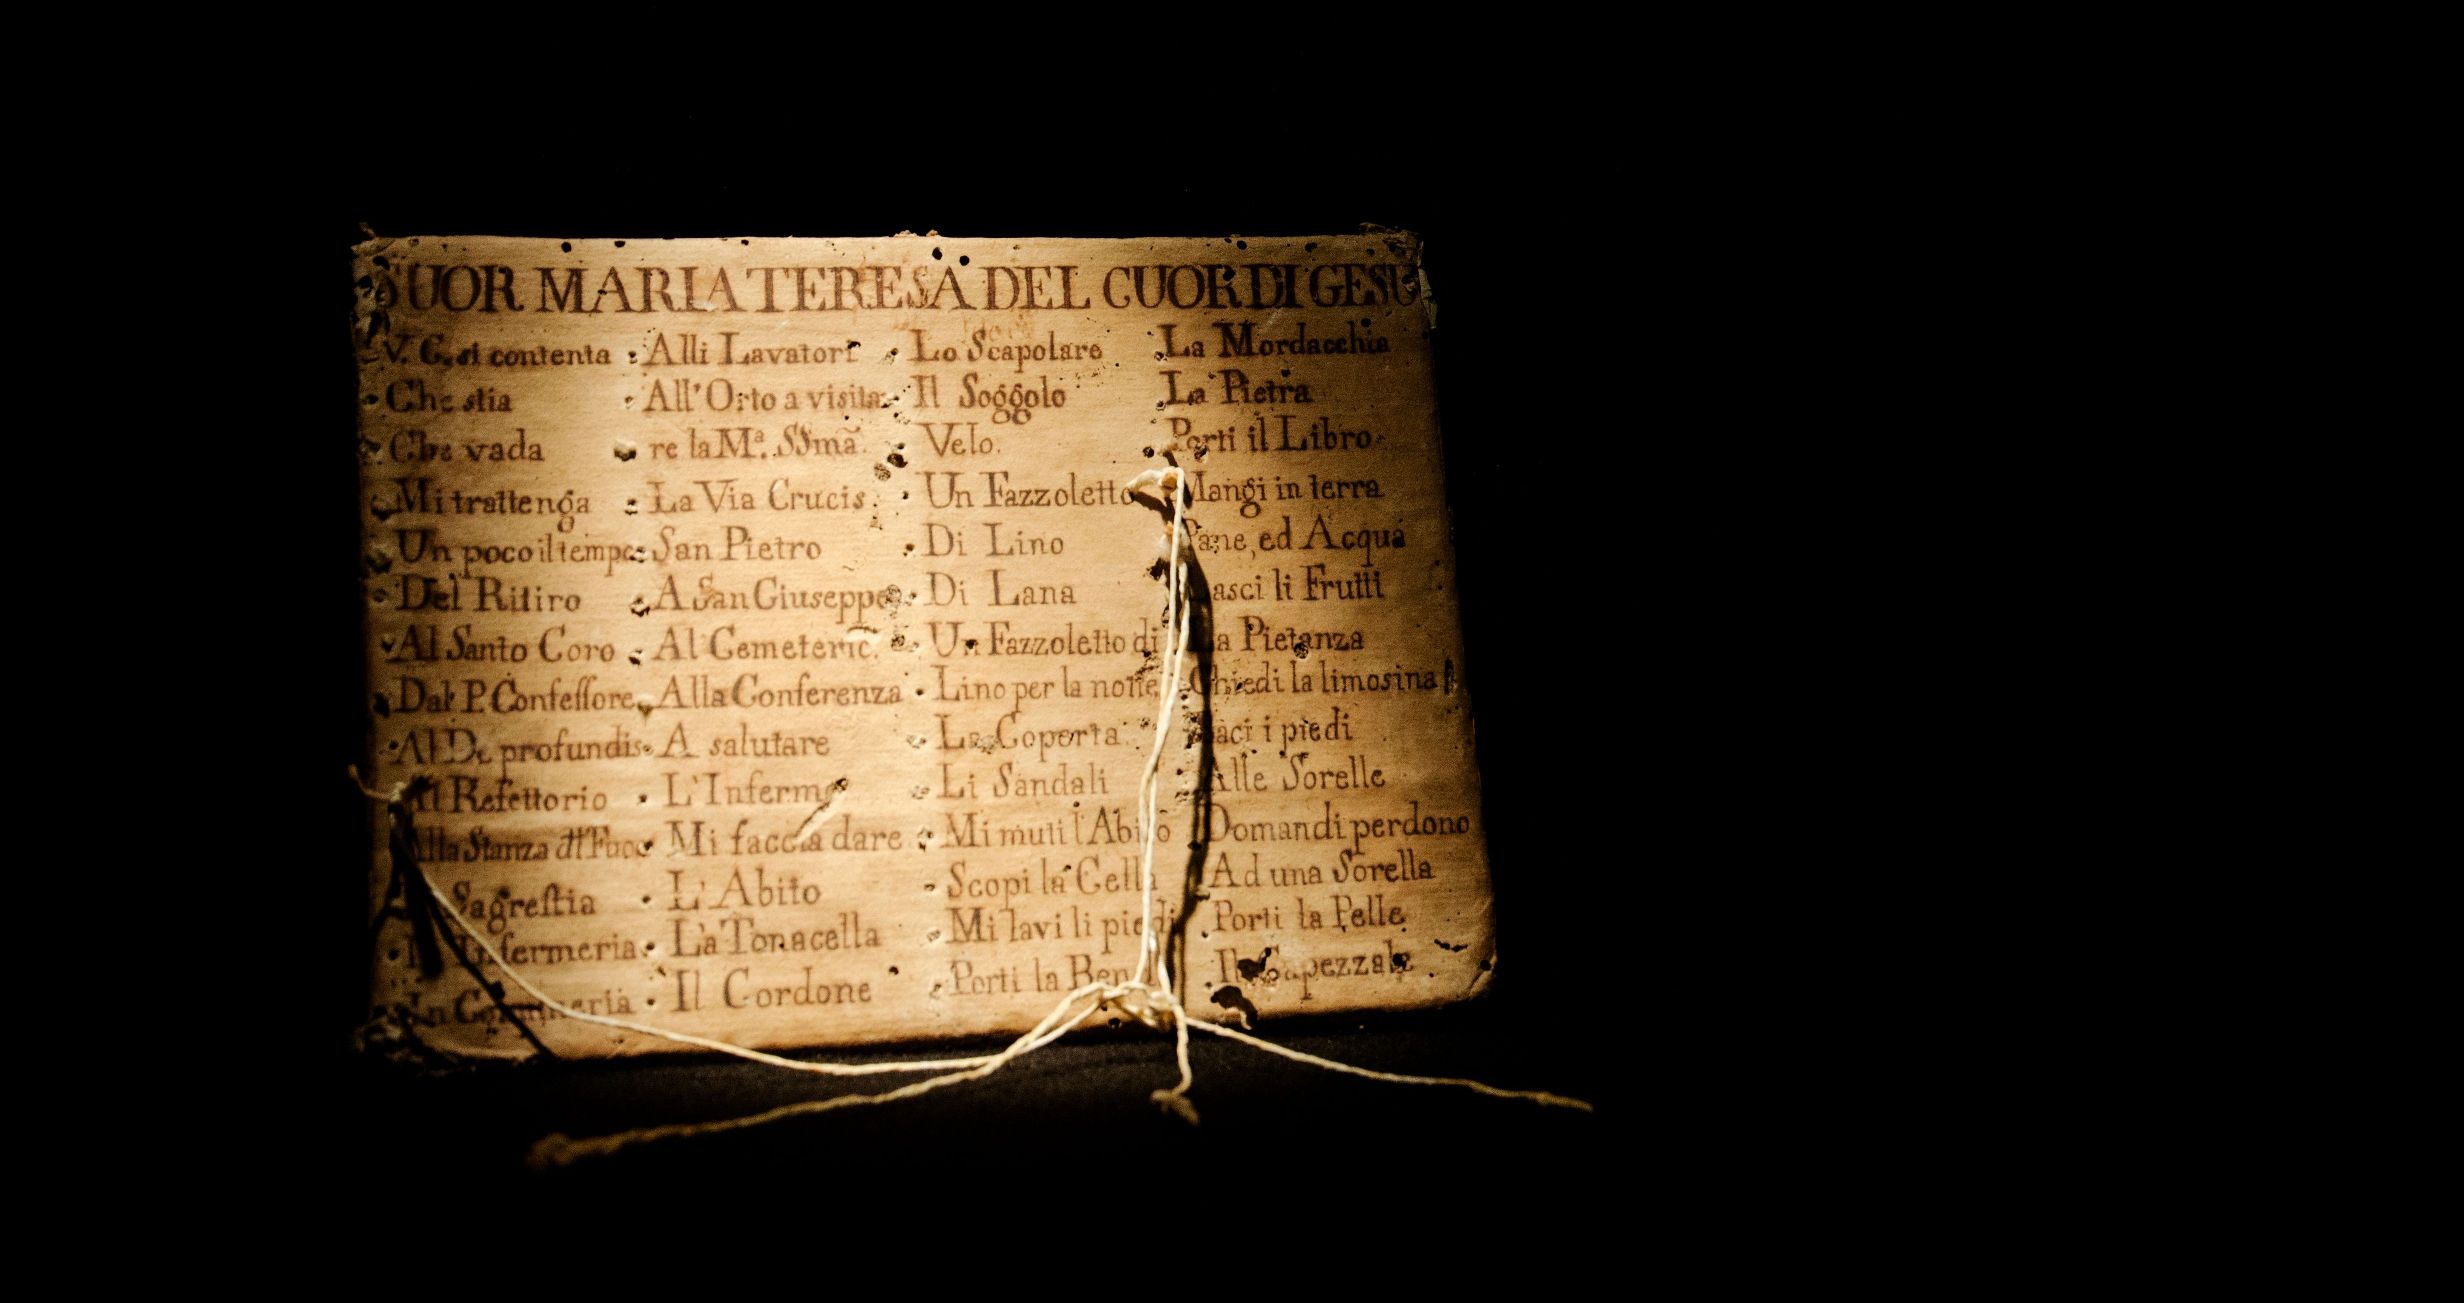 SUOR MARIA TERESA DEL CUOR DI GESU
V. C. si contenta
Che stia
Che vada
Mi trattenga
Un poco il tempo
Del Ritiro
Al Santo Coro
Dal P. Confessore
Al De profundis
Al Refettorio
Alla Stanza
Sagrestia
Infermeria
Alli Lavatori
All'Orto a visita
re la Mª. SSmã
La Via Crucis
San Pietro
A San Giuseppe
Al Cemeterio
Alla Conferenza
A salutare
L'Inferme
Mi faccia dare
L'Abito
La Tonacella
Il Cordone
Lo Scapolare
Il Soggolo
Velo.
Un Fazzoletto
Di Lino
Di Lana
Un Fazzoletto di
Lino per la notte
La Coperta
Li Sandali
Mi muti l'Abito
Scopi la Cella
Mi lavi li piedi
Porti la
La Mordacchia
La Pietra
Porti il Libro
Mangi in terra
Pane, ed Acqua
Lasci li Frutti
La Pietanza
Chiedi la limosina
Baci i piedi
Alle Sorelle
Domandi perdono
Ad una Sorella
Porti la Pelle
Il Capezzale